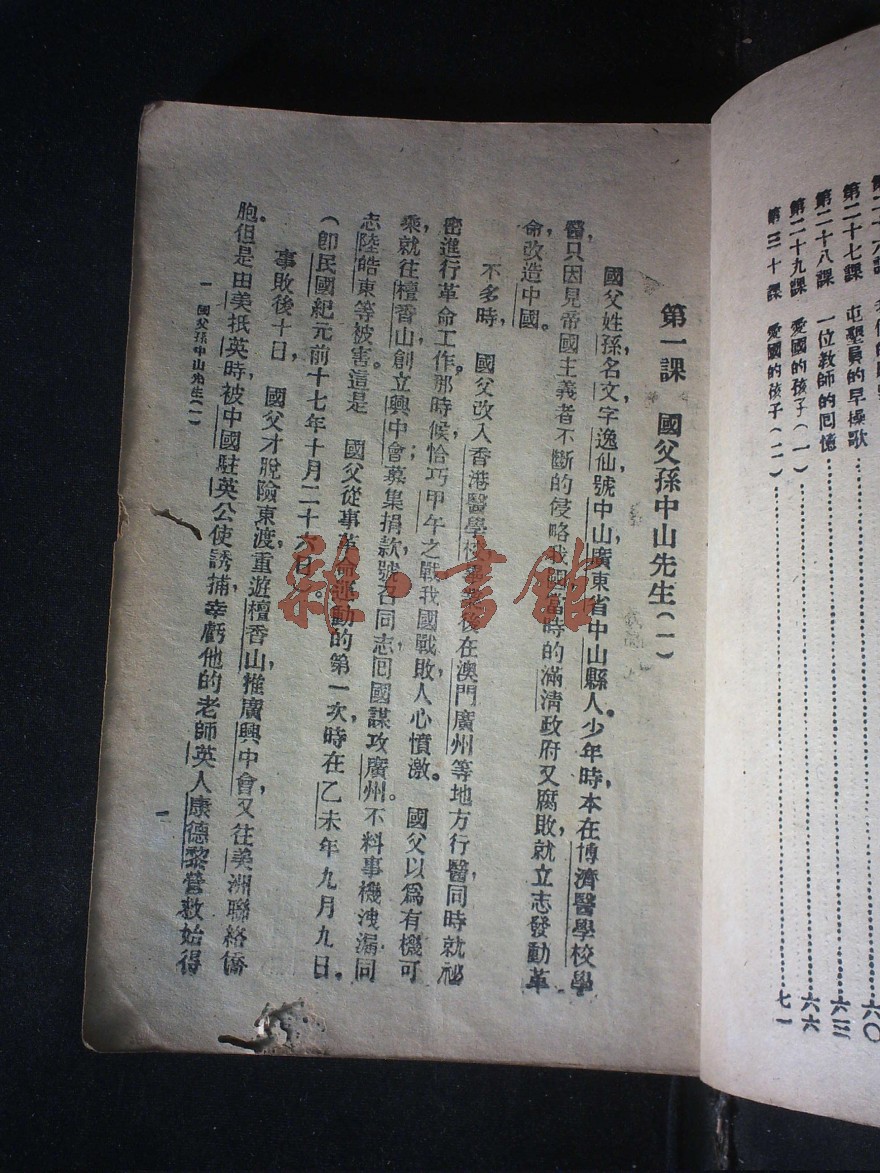 第二十七課 屯墾員的早操歌……六〇
第二十八課 一位教師的囘憶……六三
第二十九課 愛國的孩子(一)……六六
第三十課 愛國的孩子(二)……七一
第一課 國父孫中山先生(一)
國父姓孫,名文,字逸仙,號中山,廣東省中山縣人。少年時,本在博濟醫學校學
醫,只因見帝國主義者不斷的侵略我國,當時的滿清政府又腐敗,就立志發動革
命,改造中國。
不多時,國父改入香港醫學校,畢業後,在澳門廣州等地方行醫,同時就祕
密進行革命工作。那時候恰巧甲午之戰,我國戰敗,人心憤激。國父以爲有機可
乘,就往檀香山,創立興中會;募集捐款,號召同志囘國,謀攻廣州。不料事機洩漏,同
志陸皓東等被害。這是國父從事革命運動的第一次,時在乙未年九月九日。
(卽民國紀元前十七年十月二十六日)。
事敗後十日,國父才脫險東渡,重遊檀香山,推廣興中會,又往美洲聯絡僑
胞。但是由美抵英時,被中國駐英公使誘捕,幸虧他的老師英人康德黎營救,始得
一 國父孫中山先生(一)
一
雜·書館